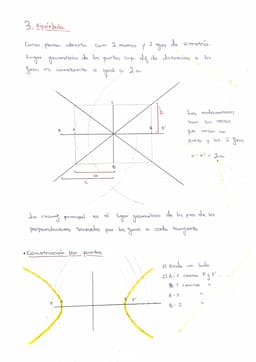 3. Hipérbola
Curva plana abierta con 2 ramas y 2 ejes de simetría.
Lugar geométrico de los puntos cuya dif. de distancias a los
focos es constante e igual a 2a
b
F'
a
c
los
2 focos
r - r' = 2a
La circunf. principal es el lugar geométrico de los pies de las
perpendiculares trazadas por los focos a cada tangente
• Construcción por puntos
1) Divido un lado
2) A-1 centros F y F'
B-1 centros "
A-2 "
B-2 "